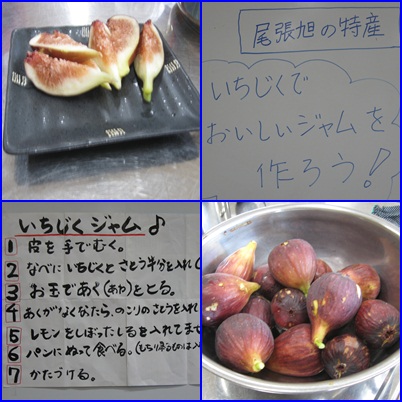 尾張旭の特産
いちじくで
おいしいジャムを
作ろう!
いちじくジャム♪
1 皮を手でむく。
2 なべにいちじくとさとう半分を入れ(
3 お玉であく(あわ)をとる。
4 あくがなくなったら、のこりのさとうを入れ
5 レモンをしぼったしるを入れてまぜ
6 パンにぬって食べる。
7 かたづける。